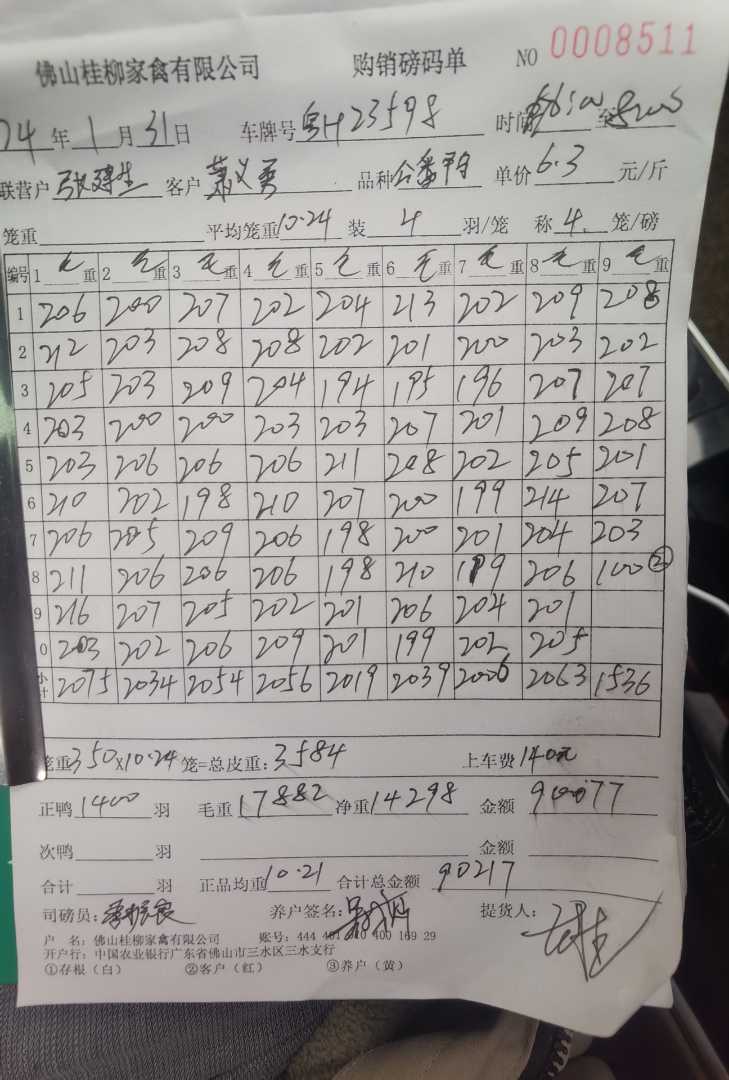 佛山桂柳家禽有限公司 购销磅码单 NO 0008511
24 年 1 月 31 日 车牌号 粤H23598 时间 至
联营户 张建生 客户 萧义勇 品种 公番鸭 单价 6.3 元/斤
笼重 平均笼重 10.24 装 4 羽/笼 称 4 笼/磅
编号 1 毛 重 2 毛 重 3 毛 重 4 毛 重 5 毛 重 6 毛 重 7 毛 重 8 毛 重 9 毛 重
1 206 200 207 202 204 213 202 209 208
2 212 203 208 208 202 201 200 203 202
3 205 203 209 204 194 195 196 207 207
4 203 200 200 203 203 207 201 209 208
5 203 206 206 206 211 208 202 205 201
6 210 202 198 210 207 200 199 214 207
7 206 205 209 206 198 200 201 204 203
8 211 206 206 206 198 210 199 206 100 ②
9 216 207 205 202 201 206 204 201
0 203 202 206 209 201 199 202 205
小计 2075 2034 2054 2056 2019 2039 2006 2063 1536
笼重 350×10.24 笼=总皮重: 3584 上车费 140元
正鸭 1400 羽 毛重 17882 净重 14298 金额 90077
次鸭 羽 金额
合计 羽 正品均重 10.21 合计总金额 90217
司磅员: 养户签名: 提货人:
户 名: 佛山桂柳家禽有限公司 账号: 444 401 010 400 169 29
开户行: 中国农业银行广东省佛山市三水区三水支行
①存根(白) ②客户(红) ③养户(黄)